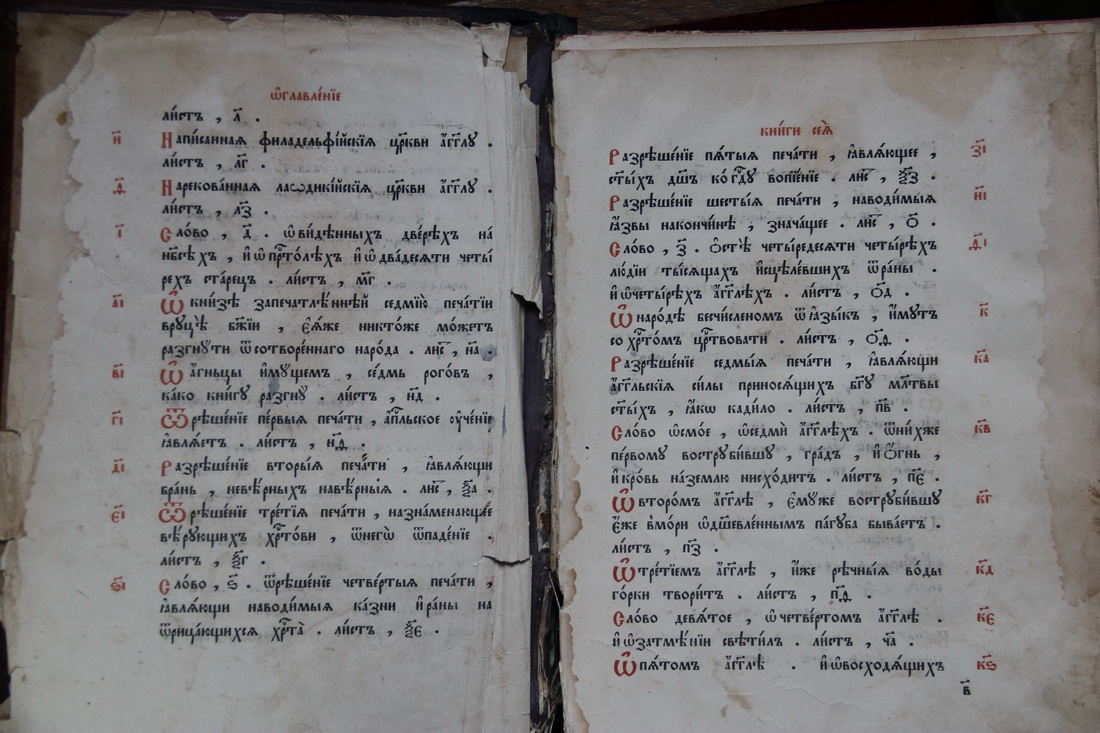 ѡ҆главле́нїе
ли́стъ , л҃ .
и҃ Написанная филадельфі́йскїѧ цр҃кви а҆́гг҃лу .
ли́стъ , лг҃ .
ѳ҃ Нарекова́нная лаѡдикі́йскїѧ цр҃кви а҆́гг҃лу .
ли́стъ , лз҃ .
і҃ Сло́во , д҃ . ѡ҆ви́дѣнныхъ две́рехъ на́
нб҃сѣ́хъ , и҆ ѡ҆прⷭ҇то́лѣхъ и҆ ѡ҆два́десѧти четы́
рехъ ста́рецъ . ли́стъ , мг҃ .
а҃і Ѡ҆ кни́зѣ запечатлѣ́ннѣй седмїю̀ печа́тїи
вруцѣ̀ бж҃їи , є҆ѧ́же никто́же мо́жетъ
разгну́ти ѿсотворе́ннаго наро́да . лиⷭ҇ , на҃ .
в҃і Ѡ҆ а҆́гньцы и҆му́щемъ , се́дмь рого́въ ,
ка́ко кни́гу разгну̀ . ли́стъ , нд҃ .
г҃і Ѿрѣше́нїе пе́рвыѧ печа́ти , а҆пⷭ҇льское ᲂу҆че́нїе
ꙗ҆влѧ́етъ . ли́стъ , нѳ҃ .
д҃і Разрѣше́нїе вторы́ѧ печа́ти , ꙗ҆влѧ́ющи
бра́нь , невѣ́рныхъ навѣ́рныѧ . лиⷭ҇ , ѯа҃ .
є҃і Ѿрѣше́нїе тре́тїѧ печа́ти , назна́менающее
вѣ́рующихъ хрⷭ҇то́ви , ѿнегѡ̀ ѿпаде́нїе .
ли́стъ , ѯг҃ .
ѕ҃і Сло́во , ѕ҃ . ѿрѣше́нїе четве́ртыѧ печа́ти ,
ꙗ҆влѧ́ющи наводи́мыѧ ка́зни и҆ ра́ны на
ѿрица́ющихсѧ хрⷭ҇та̀ . ли́стъ , ѯє҃ .
кни́ги сеѧ̀
Разрѣше́нїе пѧ́тыѧ печа́ти , ꙗ҆влѧ́ющее , з҃і
ст҃ы́хъ дш҃ъ ко гдⷭ҇у вопїе́нїе . лиⷭ҇ , ѯз҃ .
Разрѣше́нїе шесты́ѧ печа́ти , наводи́мыѧ и҃і
ꙗ҆́звы накончи́нѣ , зна́чащее . лиⷭ҇ , о҃ .
Сло́во , з҃ . ѻ҆стѣ̀ четы́редесѧти четы́рѣхъ ѳ҃і
лю́дїи ты́сѧщахъ и҆сцѣлѣ́вшихъ ѿра́ны .
и҆ ѡ҆четы́рѣхъ а҆́гг҃лѣхъ . ли́стъ , од҃ .
Ѡ҆ наро́дѣ бесчи́сленомъ ѿꙗ҆зы́къ , и҆́мутъ к҃
со хрⷭ҇то́мъ црⷭ҇твовати . ли́стъ , оѳ҃ .
Разрѣше́нїе седмы́ѧ печа́ти , ꙗ҆влѧ́ющи ка҃
а҆́гг҃льскїѧ си́лы приносѧ́щихъ бг҃у мл҃твы
ст҃ы́хъ , ꙗ҆́кѡ кади́ло . ли́стъ , пв҃ .
Сло́во ѡ҆смо́е , ѡ҆седмѝ а҆́гг҃лѣхъ . ѿни́хже кв҃
пе́рвому вострꙋби́вшу , гра́дъ , и҆ ѻ҆́гнь ,
и҆ кро́вь на́землю нисхо́дитъ . ли́стъ , пє҃ .
Ѡ҆ второ́мъ а҆́гг҃лѣ , є҆му́же вострꙋби́вшу кг҃
є҆́же вмо́ри ѡ҆дш҃евле́ннымъ па́губа быва́етъ .
ли́стъ , пз҃ .
Ѡ҆ тре́тїемъ а҆́гг҃лѣ , и҆́же рѣ́чныѧ во́ды кд҃
го́рки твори́тъ . ли́стъ , пѳ҃ .
Сло́во девѧ́тое , ѡ҆четве́ртомъ а҆́гг҃лѣ . кє҃
и҆ ѡ҆затмѣ́нїи свѣти́лъ . ли́стъ , ча҃ .
Ѡ҆ пѧ́томъ а҆́гг҃лѣ . и҆ ѡ҆восходѧ́щихъ кѕ҃
в҃